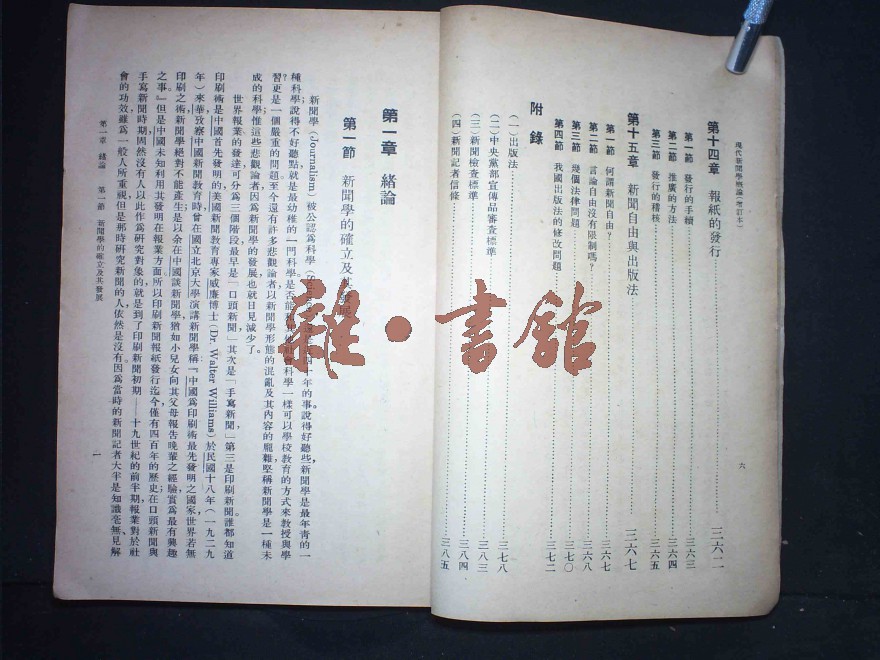 現代新聞學概論(增訂本)
六
第十四章 報紙的發行……三六二
第一節 發行的手續……三六三
第二節 推廣的方法……三六四
第三節 發行的稽核……三六五
第十五章 新聞自由與出版法……三六七
第一節 何謂新聞自由?……三六七
第二節 言論自由沒有限制嗎?……三六八
第三節 幾個法律問題……三七〇
第四節 我國出版法的修改問題……三七二
附錄
(一)出版法……三七八
(二)中央黨部宣傳品審查標準……三八三
(三)新聞檢查標準……三八四
(四)新聞記者信條……三八五
雜·書館
第一章 緒論
第一節 新聞學的確立及其發展
新聞學(Journalism)被公認爲科學(Science)年的事。說得好聽些,新聞學是最年青的一
種科學;說得不好聽點,就是最幼稚的一門科學。是否能社會科學一樣可以學校敎育的方式來敎授與學
習,更是一個嚴重的問題。至今還有許多悲觀論者,以新聞學形態的混亂及其內容的龐雜,堅稱新聞學是一種未
成的科學。惟這些悲觀論者,因爲新聞學的發展,也就日見減少了。
世界報業的發達,可分爲三個階段,最早是「口頭新聞」,其次是「手寫新聞」,第三是印刷新聞。誰都知道
印刷術是中國首先發明的,美國新聞敎育專家威廉博士(Dr. Walter Williams)於民國十八年(一九二九
年)來華攷察中國新聞敎育時,曾在國立北京大學演講新聞學稱:「中國爲印刷術最先發明之國家,世界若無
印刷之術,新聞學絕對不能產生,是以余在中國談新聞學,猶如小兒女向其父母報告晚輩之經驗,實爲最有興趣
之事。」但是中國未知利用其發明在報業方面,所以印刷新聞報紙發行迄今,僅有四百年的歷史;在口頭新聞與
手寫新聞時期,固然沒有人以此作爲研究對象的,就是到了印刷新聞初期——十九世紀的前半期,報業對於社
會的功效,雖爲一般人所重視,但是那時研究新聞的人,依然是沒有,因爲當時的新聞記者,大半是知識毫無、見解
第一章 緒論 第一節 新聞學的確立及其發展
一